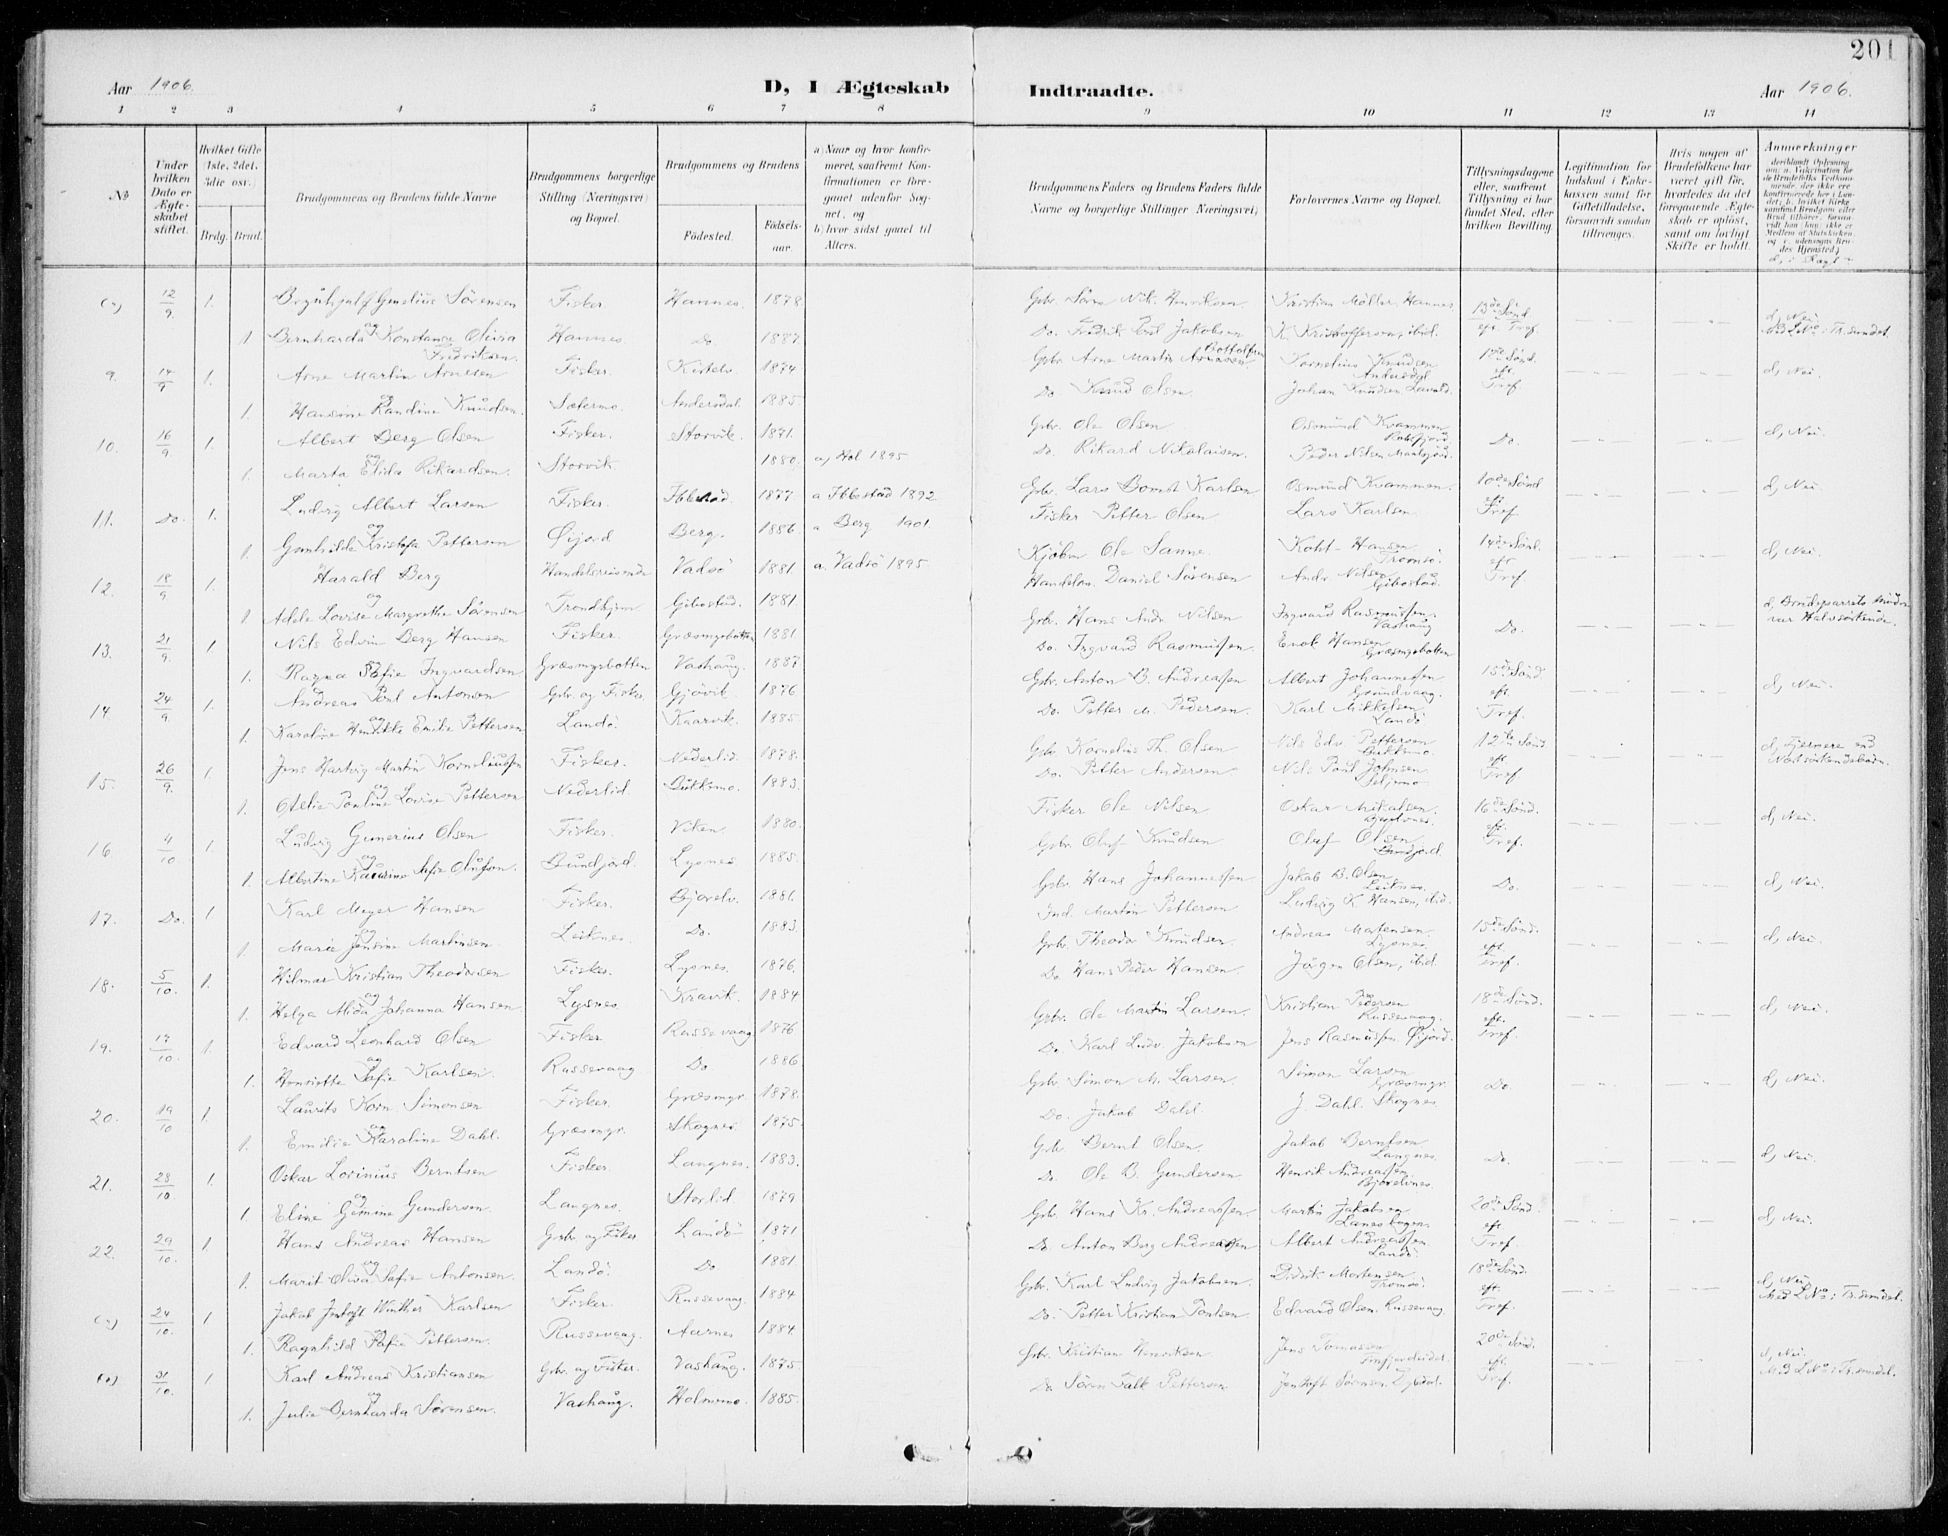 201
Aar 1906.
D, I Ægteskab Indtraadte.
Aar 1906.
1 2 3 4 5 6 7 8 9 10 11 12 13 14
№
Under hvilken Dato er Ægteskabet stiftet.
Hvilket Gifte 1ste, 2det, 3die osv.
Brdg. Brud.
Brudgommens og Brudens fulde Navne
Brudgommens borgerlige Stilling (Næringsvei) og Bopæl.
Brudgommens og Brudens
Fødested.
Fødselsaar.
a) Naar og hvor konfirmeret, saafremt Konfirmationen er foregaaet udenfor Sognet, og
b) hvor sidst gaaet til Alters.
Brudgommens Faders og Brudens Faders fulde Navne og borgerlige Stillinger (Næringsvei)
Forlovernes Navne og Bopæl.
Tillysningsdagene eller, saafremt Tillysning ei har fundet Sted, efter hvilken Bevilling.
Legitimation for Indskud i Enkekassen samt for Giftetilladelse, forsaavidt saadan tiltrænges.
Hvis nogen af Brudefolkene har været gift før, hvorledes da det foregaaende Ægteskab er opløst, samt om lovligt Skifte er holdt.
Anmerkninger
12/9 1. Sørensen Fisker Hannes. 1878. Gbr. Søren Nik. Henriksen. Kristian Möller, Hannes 13de Sönd. d, Nei
1 Bernharda og Konstanse Olivia Fredriksen. Hannes Do. 1887. Do. Fredrik Jakobsen K. Kristoffersen, ibid. eft. Tref.
9. 14/9 1. Arne Martin Arnesen Fisker. 1874 Gbr. Arne Martin Kornelius Knudsen Andersdal 1ste Sönd. eft. Tref. d, Nei.
1. Hansine og Randine Knudsen. Sætermo. Andersdal. 1885 Do. Knud Olsen. Johan Knudsen
10. 16/9 1. Albert Berg Olsen Fisker. Storvik. 1871. Gbr. Ole Olsen Osmund Kvammen Do. d, Nei.
1. Marta og Elida Rikardsen. Storvik. 1880. a, Hol 1895 Do. Rikard Nikolaisen. Peder Nilsen
11. Do. 1. Ludvig Albert Larsen Fisker. Ibbestad. 1877 a Ibbestad 1892 Gbr. Lars Karlsen Osmund Kvammen. 10de Sönd eft Tref. d, Nei
1. Gunhilde og Kristofa Pettersen Øijord Berg. 1886 a Berg 1901 Fisker Petter Olsen Lars Karlsen
12. 18/9 1. Harald Berg Handelsreisende Vadsö 1881 a. Vadsö 1895 Kjøbm. Ole Sanne. Hansen Tromsö. 14de Sönd. eft Tref. d, Nei.
1 Adele og Lovise Margrethe Sörensen Trondhjem Gibostad. 1881. Handelsm. Daniel Sörensen Andr. Nilsen Gibostad.
13. 21/9. 1. Nils Edvin Berg Hansen Fisker. Græsmyrbotten 1881. Gbr. Hans Andr. Nilsen Ingvard Rasmussen. Vashaug Do. d, Brudeparrets Mødre var Halvsöskende.
1. Ragna og Sofie Ingvardsen Græsmyrbotten Vashaug. 1887 Do. Ingvard Rasmussen. Enok Hansen Græsmyrbotten
14 24/9. 1. Andreas Poul Antonsen Gbr. og Fisker Gjövik. 1876 Gbr. Anton B. Andreassen Albert Johannessen Grundvaag. 15de Sönd. eft Tref. d, Nei.
1. Karoline og Henrikke Emilie Pettersen Landö. Kaarvik. 1885. Do. Petter M. Pedersen. Karl Mikkelsen Landö
15. 26/9. 1. Jens Hartvig Martin Korneliussen Fisker. Nederlid. 1878. Gbr. Kornelius Th. Olsen Nils Edv. Pettersen 12te Sönd. eft Tref d, Fjernere end Næstsöskendebörn.
1. og Pauline Lovise Pettersen Nederlid. 1883. Do. Petter Andersen Nils Poul Johnsen
16 4/10 1. Ludvig Gunerius Olsen Fisker. Viken. 1880. Fisker Ole Nilsen Oskar Mikalsen. 16de Sönd. eft. Tref. d, Nei.
1. Albertine og Katarina Sofie Olufsen. Lysnes. 1885. Gbr. Oluf Knudsen Oluf Olsen
17. Do. 1 Karl Meyer Hansen Fisker. Bjorelv. 1881. Gbr. Hans Johannessen Jakob B. Olsen Leiknes. Do. d, Nei.
1. Marie og Jensine Martinsen. Leiknes. Do. 1883. Ind. Martin Pettersen Ludvig K. Hansen, ibid.
18. 5/10. 1. Hilmar Kristian Theodorsen Fisker. Lysnes. 1876. Gbr. Theodor Knudsen. Andreas Mortensen Lysnes. 15de Sönd. eft. Tref. d, Nei.
1. Helga og Alida Johanna Hansen Lysnes Kravik. 1884 Do. Hans Peder Hansen. Jörgen Olsen, ibid.
19. 17/10. 1. Edvard Leonhard Olsen Fisker Russevaag 1876 Gbr. Ole Martin Larsen. Kristian Pedersen Russevaag. 18de Sönd. eft. Tref. d, Nei.
1. Henriette og Sofie Karlsen. Russevaag Do 1886 Do. Karl Ludv. Jakobsen Jens Rasmussen Øijord.
20. 19/10 1. Laurits Korn. Simonsen Fisker. Græsmyr. 1878. Gbr. Simon M. Larsen. Simon Larsen Græsmyr Do. d, Nei.
1. Emilie og Karoline Dahl. Græsmyr. Skognes. 1875. Do. Jakob Dahl. J. Dahl. Skognes.
21. 28/10 1. Oskar Lorinius Berntsen Fisker. Langnes. 1883. Gbr. Bernt Olsen. Jakob Berntsen Langnes. Do. d, Nei.
1. Eline og Gemine Gundersen. Langnes. Storlid. 1879. Do. Ole B. Gundersen Henrik Andreassen
22. 29/10. 1. Hans Andreas Hansen Gbr. og Fisker Landö 1871 Gbr. Hans Kr. Andreassen. Martin Jakobsen 20de Sönd. eft Tref. d, Nei.
1. Marit og Oliva Sofie Antonsen. Landö. Do 1881. Do. Anton Berg Andreassen Albert Andreassen Landö.
24/10. 1 Jakob Winther Karlsen Fisker. Russevaag. 1884. Gbr. Karl Ludvig Jakobsen Didrik Mortensen Tromsö. 18de Sönd. eft. Tref d, Nei
1. Ragnhild og Sofie Pettersen. Russevaag. Aarnes 1884. Do. Petter Kristian Poulsen Edvard Olsen. Russevaag
31/10. 1 Karl Andreas Kristiansen Gbr. og Fisker. Vashaug. 1875. Gbr. Kristian Henriksen Jens Tomassen 20de Sönd. eft. Tref. d, Nei.
1. Julie og Bernharda Sørensen. Vashaug. Holmemo. 1885. Do. Sören Falk Pettersen